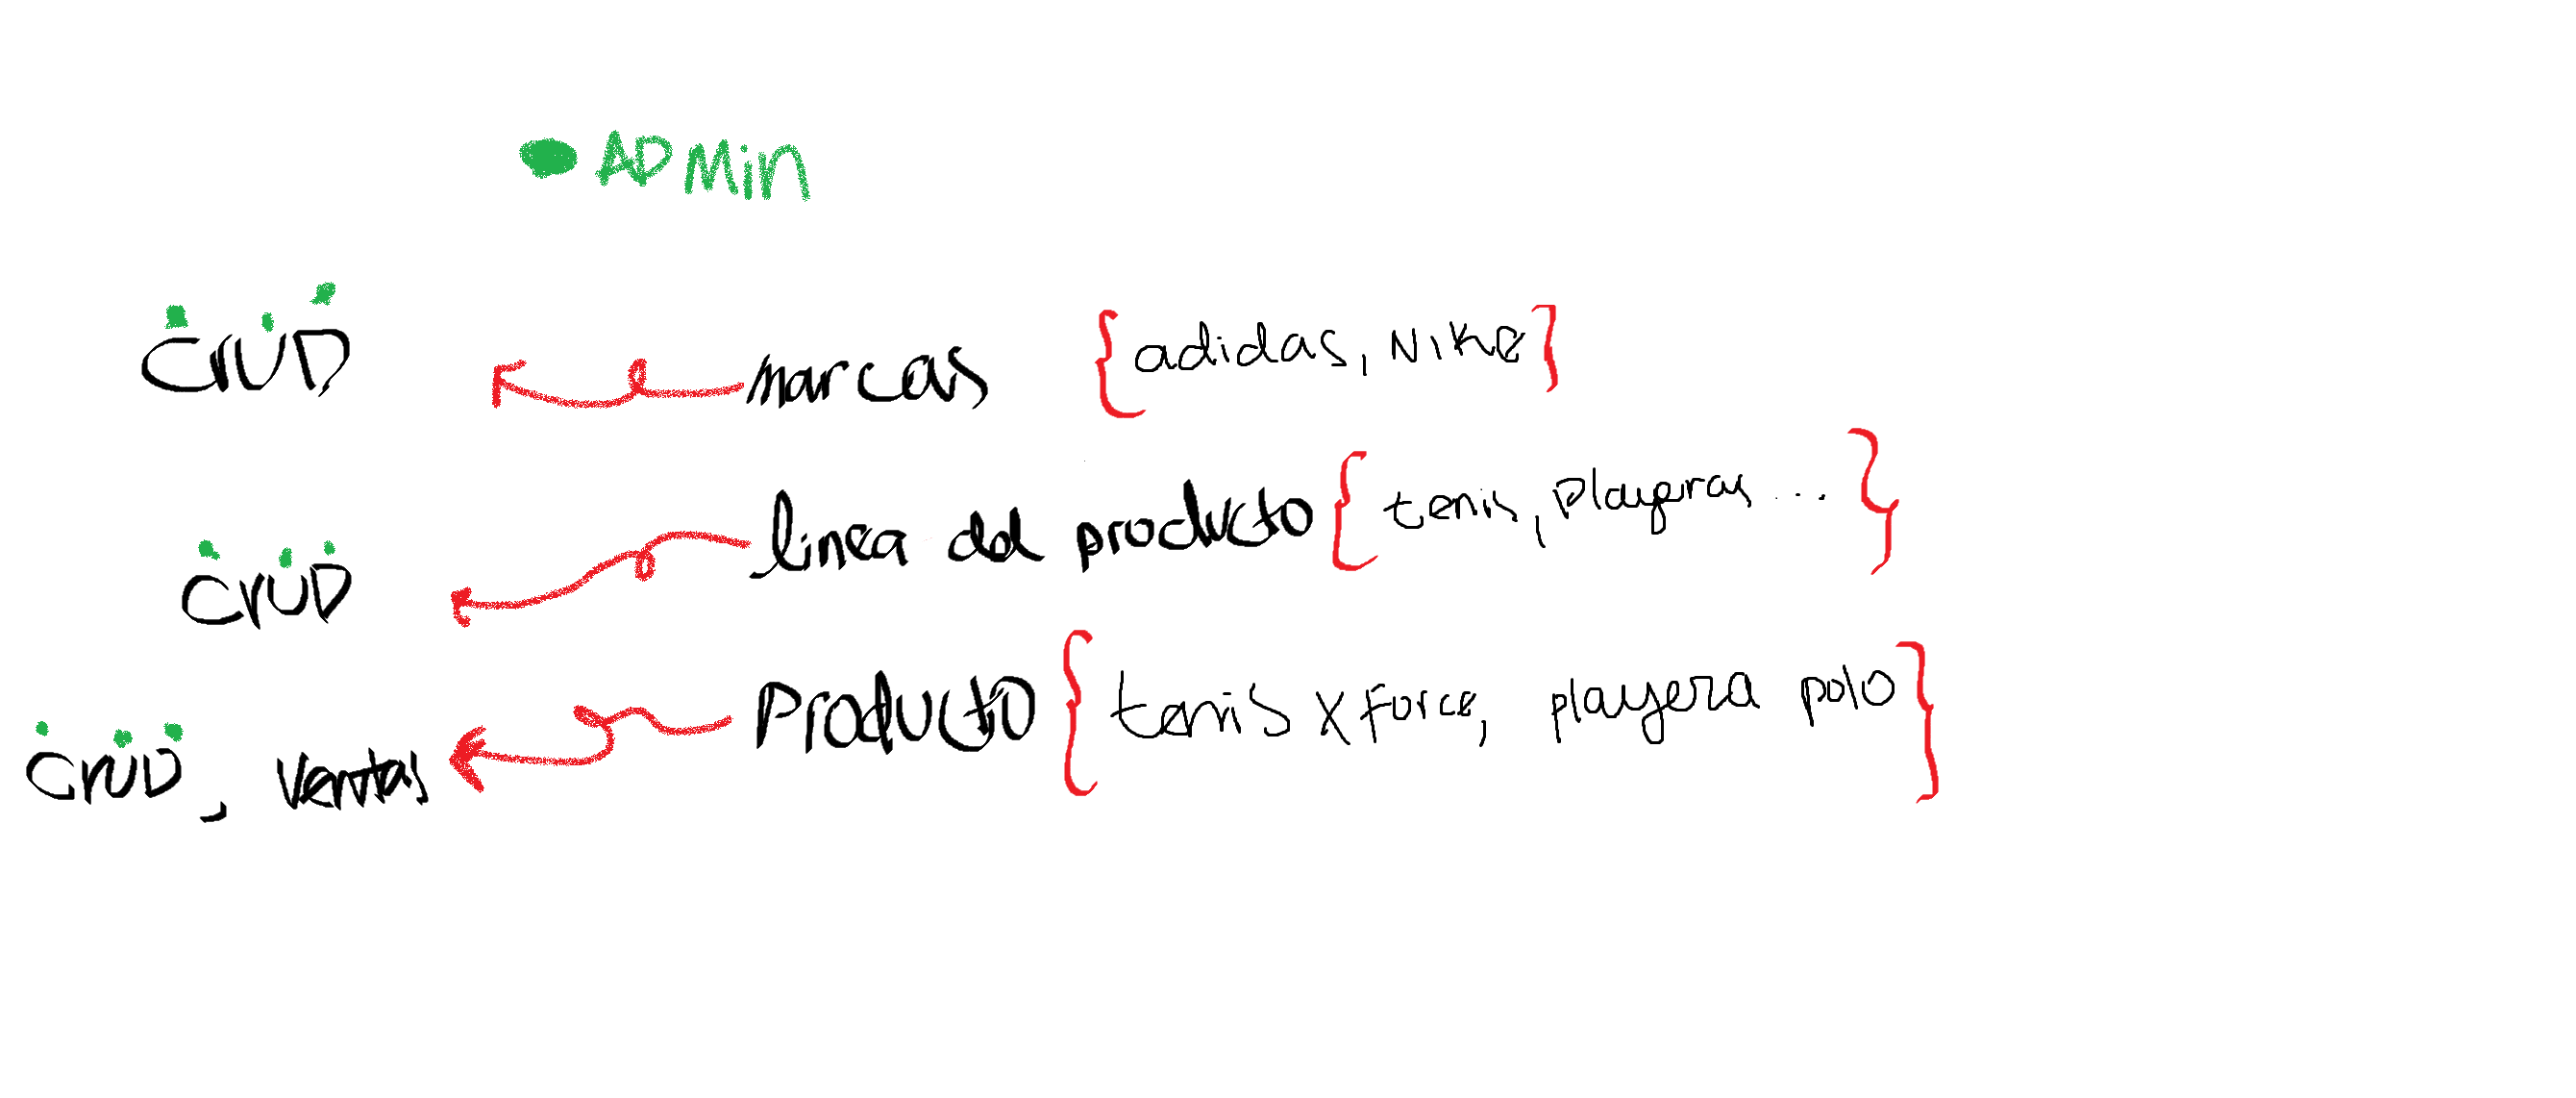 ADMin
CrUD marcas {adidas, NIKe}
CrUD linea del producto {tenis, Playeras ...}
CrUD, Ventas Producto {tenis XForce, playera polo}